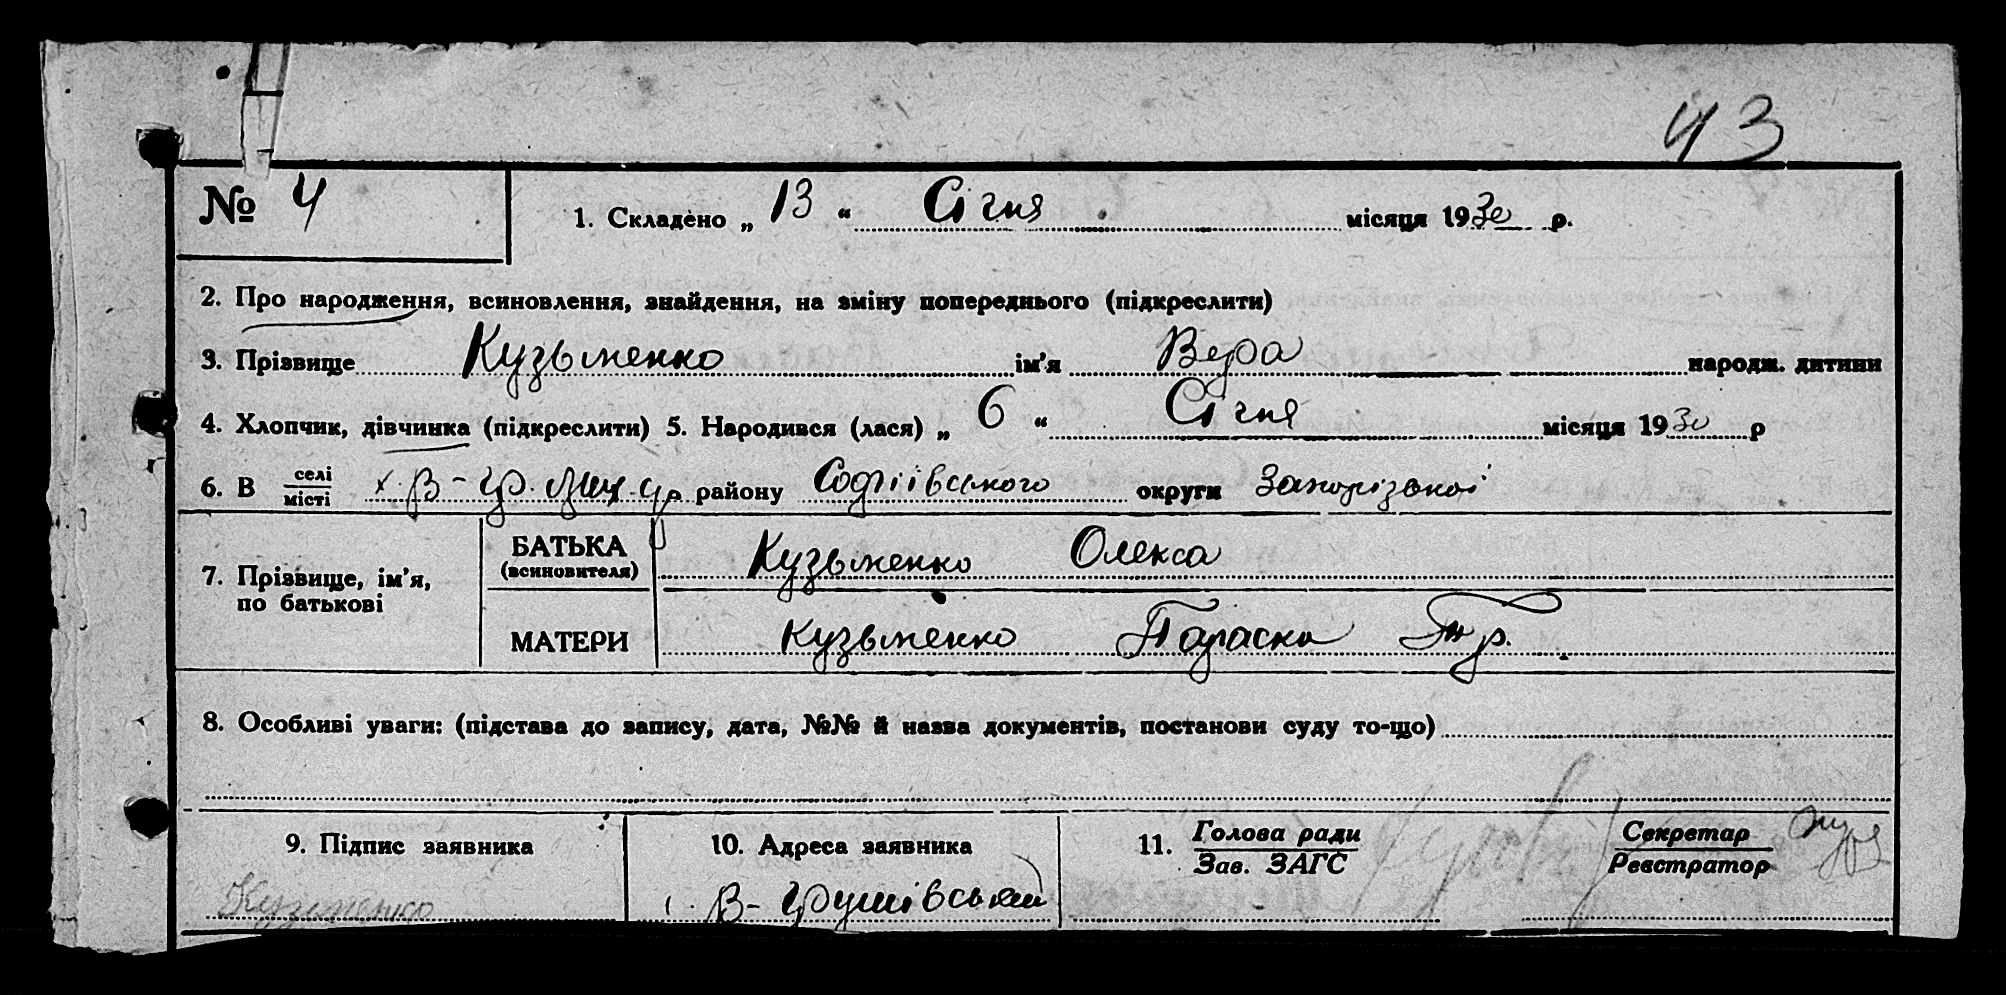 43
№ 4
1. Складено „ 13 “ Січня місяця 1930 р.
2. Про народження, всиновлення, знайдення, на зміну попереднього (підкреслити)
3. Прізвище Кузьменко ім'я Вера народж. дитини
4. Хлопчик, дівчинка (підкреслити) 5. Народився (лася) „ 6 “ Січня місяця 1930 р
6. В селі місті х. В- району Софіївського округи Запорізької
7. Прізвище, ім'я, по батькові
БАТЬКА (всиновителя) Кузьменко Олекса
МАТЕРИ Кузьменко Параска
8. Особливі уваги: (підстава до запису, дата, №№ й назва документів, постанови суду то-що)
9. Підпис заявника 10. Адреса заявника 11. Голова ради Зав. ЗАГС Секретар Реєстратор
Кузьменко В-